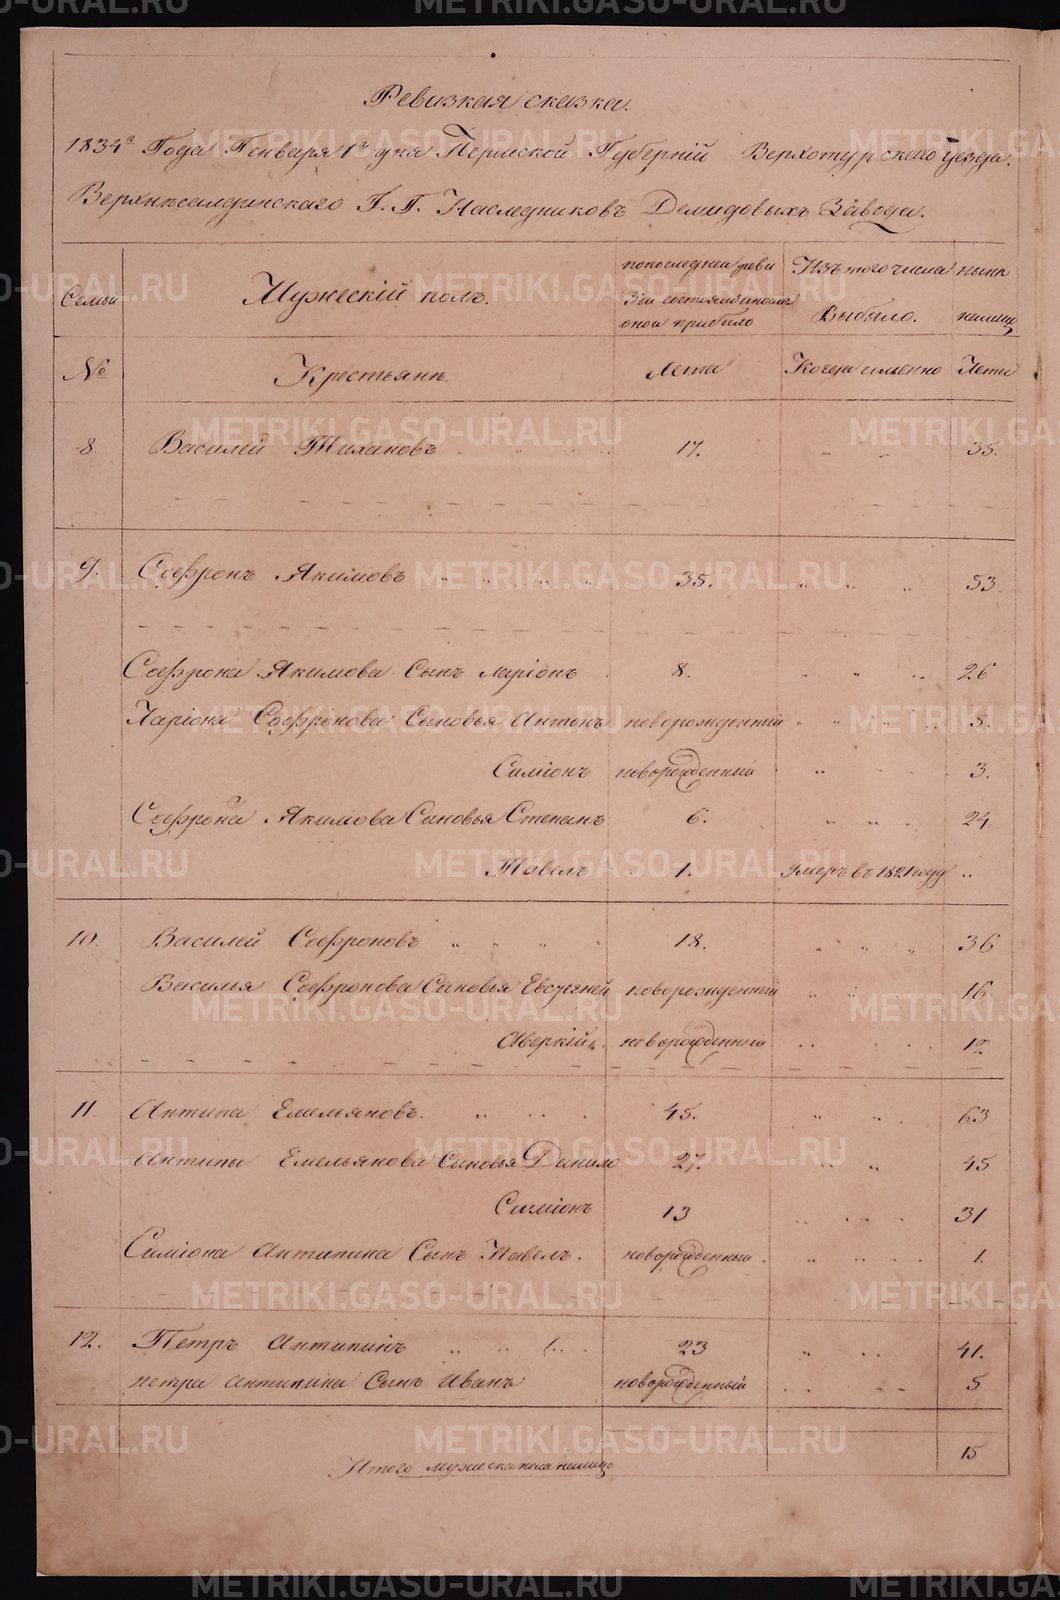 Ревизкая сказка.
1834го Года Генваря 1го дня Пермской Губерніи Верхотурскаго уезда.
Верхнесалдинскаго Г. Г. Наследниковъ Демидовыхъ Завода.
Семьи
Мужескій полъ.
по последней реви
зіи состояло и после
оной прибыло
Изъ того числа
Выбыло.
ныне
налицо
№
Крестьяне.
Лета
Когда именно
Лета
8 Василей Тихановъ 17. 35.
9. Софронъ Якимовъ 35. 53.
Софрона Якимова Сынъ Ларіонъ 8. 26
Ларіона Софронова Сыновья Антонъ новорожденный 5.
Симіонъ новорожденный 3.
Софрона Якимова Сыновья Степанъ 6. 24
Павелъ 1. Умеръ въ 1821 году
10. Василей Софроновъ 18. 36
Василья Софронова Сыновья Евсигней новорожденный 16
Аверкій новорожденный 12
11. Антипа Емельяновъ. 45. 63
Антипы Емельянова Сыновья Данило 27. 45
Симіонъ 13 31
Симіона Антипина Сынъ Павелъ. новорожденный 1.
12. Петръ Антипинъ 23 41.
петра Антипина Сынъ Иванъ новорожденный 5
Итого мужеска пола налицо 15
METRIKI.GASO-URAL.RU